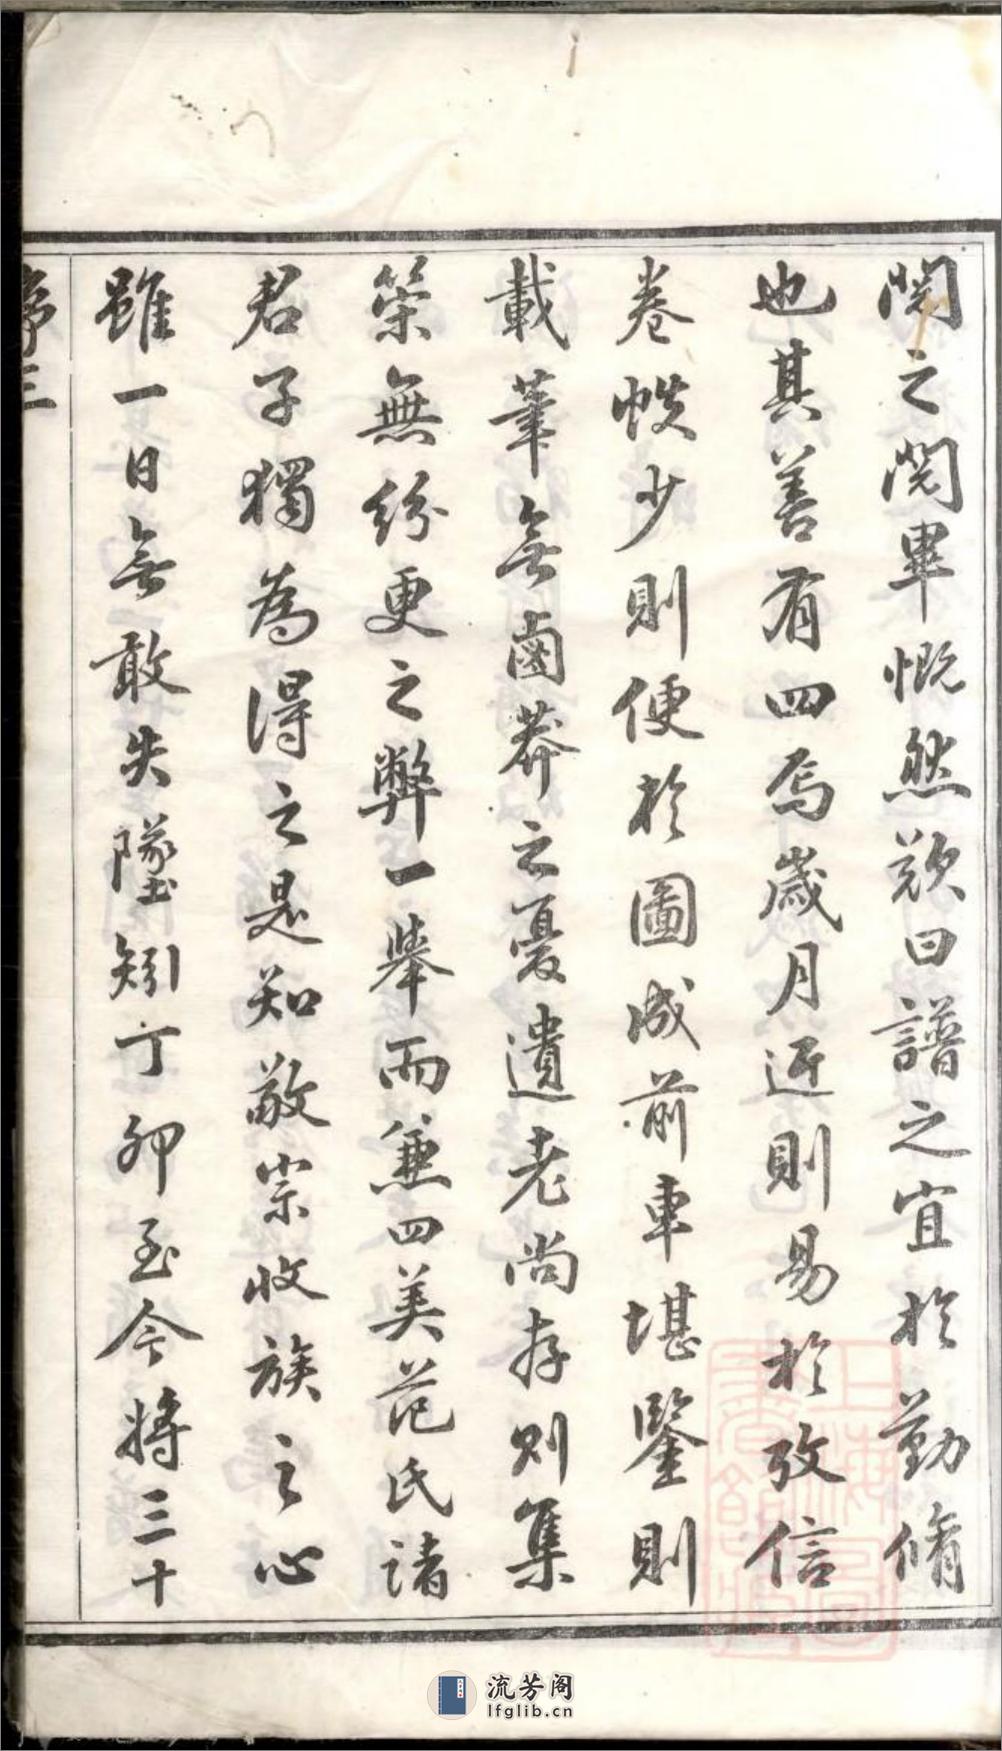 閱之閱畢慨然歎曰譜之宜於勤脩
也其善有四焉歲月近則易於攷信
卷帙少則便於圖成前車堪鑒則
載筆無鹵莽之憂遺老尚存則集
榮無紛更之弊一舉而兼四美范氏諸
君子獨為得之是知敬宗收族之心
雖一日無敢失墜矧丁卯至今將三十
序三
上海圖書館藏
流芳阁
lfglib.cn